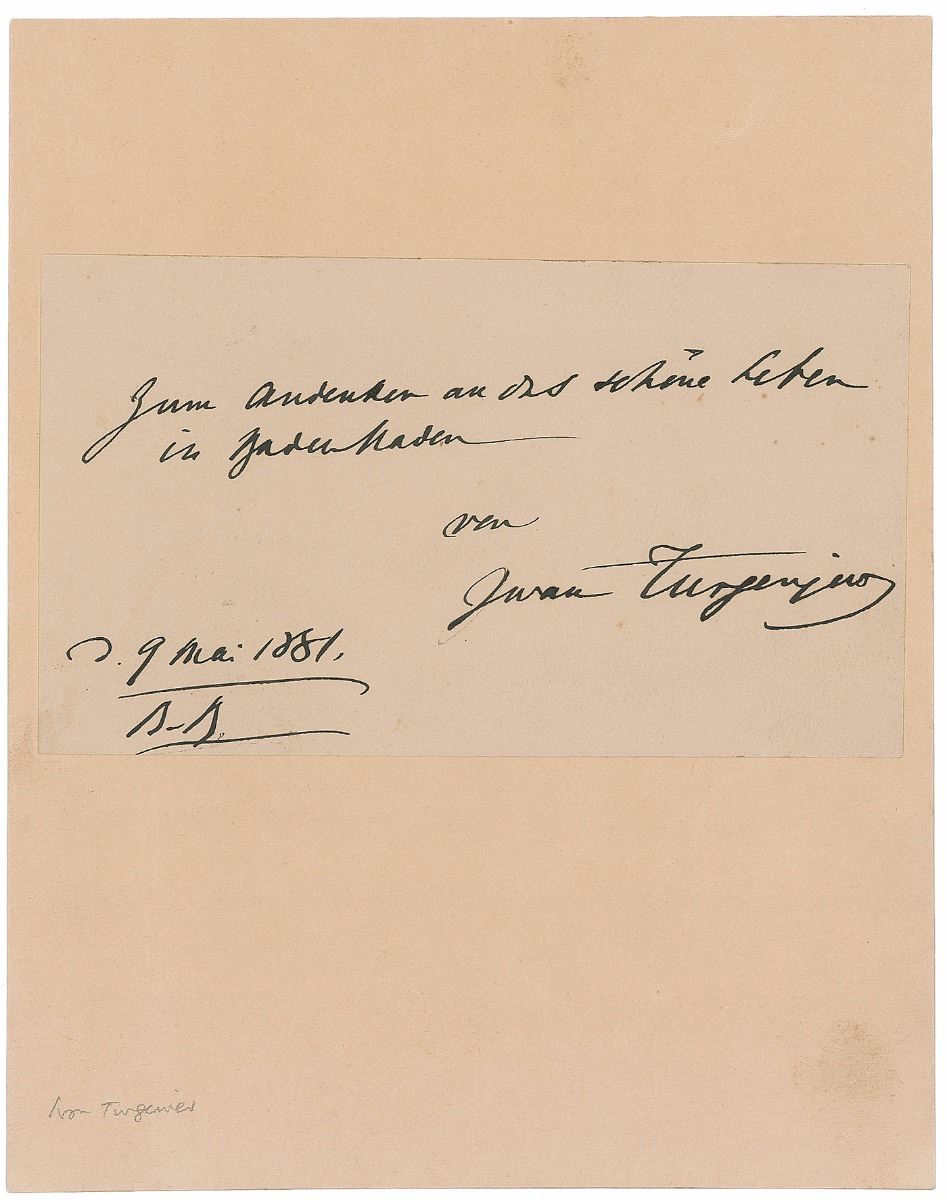 Zum Andenken an das schöne Leben
in Baden Baden
von
Iwan Turgenjew
d. 9 Mai 1881.
B.-B.
Iwan Turgeniev